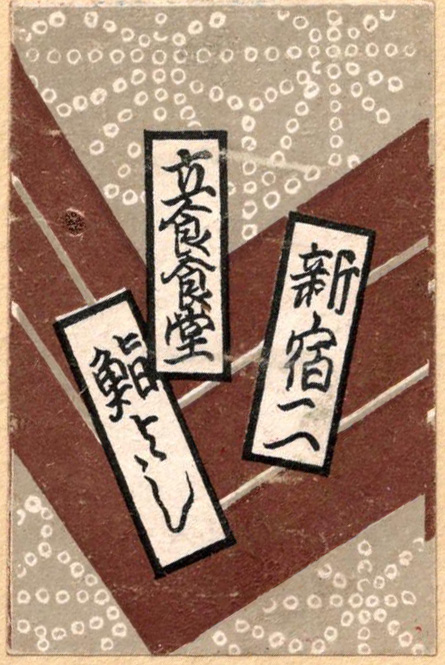 新宿二ヘ
立食食堂
鮨よし